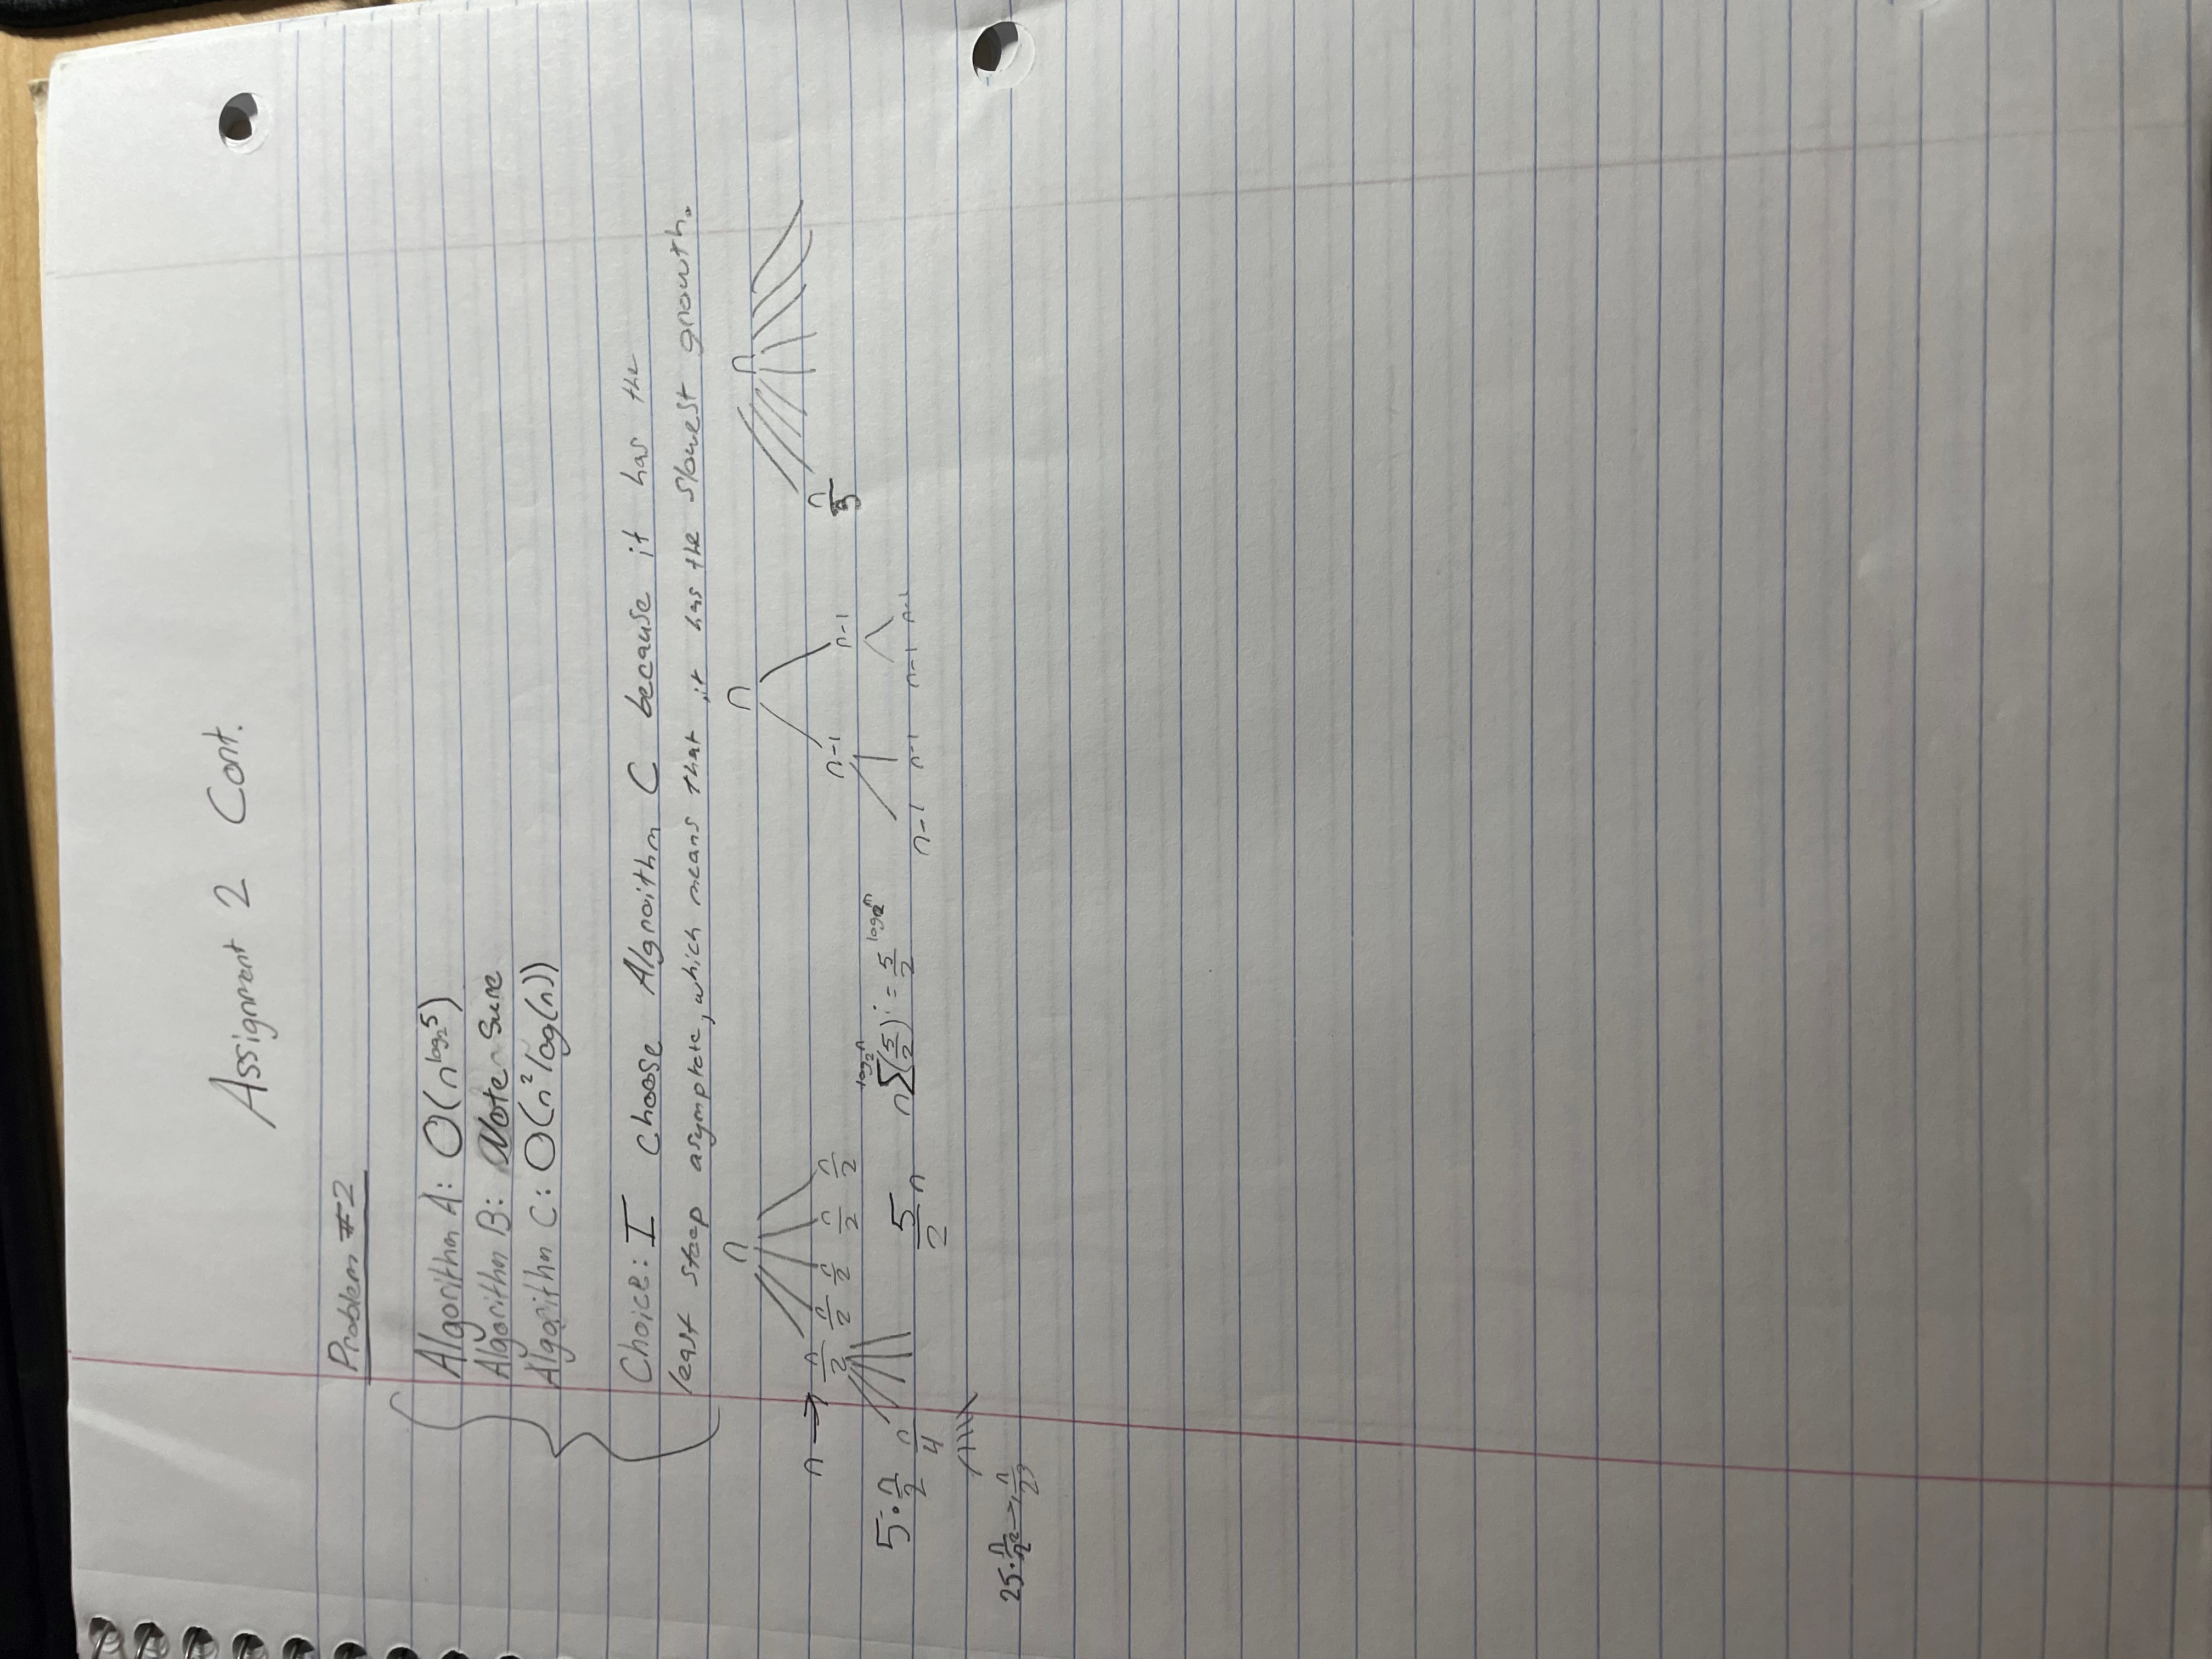 Assignment 2 Cont.
Problem #2
Algorithm A: O(n^log₂5)
Algorithm B: Note Sure
Algorithm C: O(n² log(n))
Choice: I choose Algroithm C because it has the
least steep asymptote, which means that it has the slowest growth.
n
n → n/2 n/2 n/2 n/2 n/2
5·n/2 n/4
5/2 n
n Σ^log₂n (5/2)^i = 5/2^log₂n
n
n-1 n-1
n-1 n-1 n-1 n-1
n
n/3